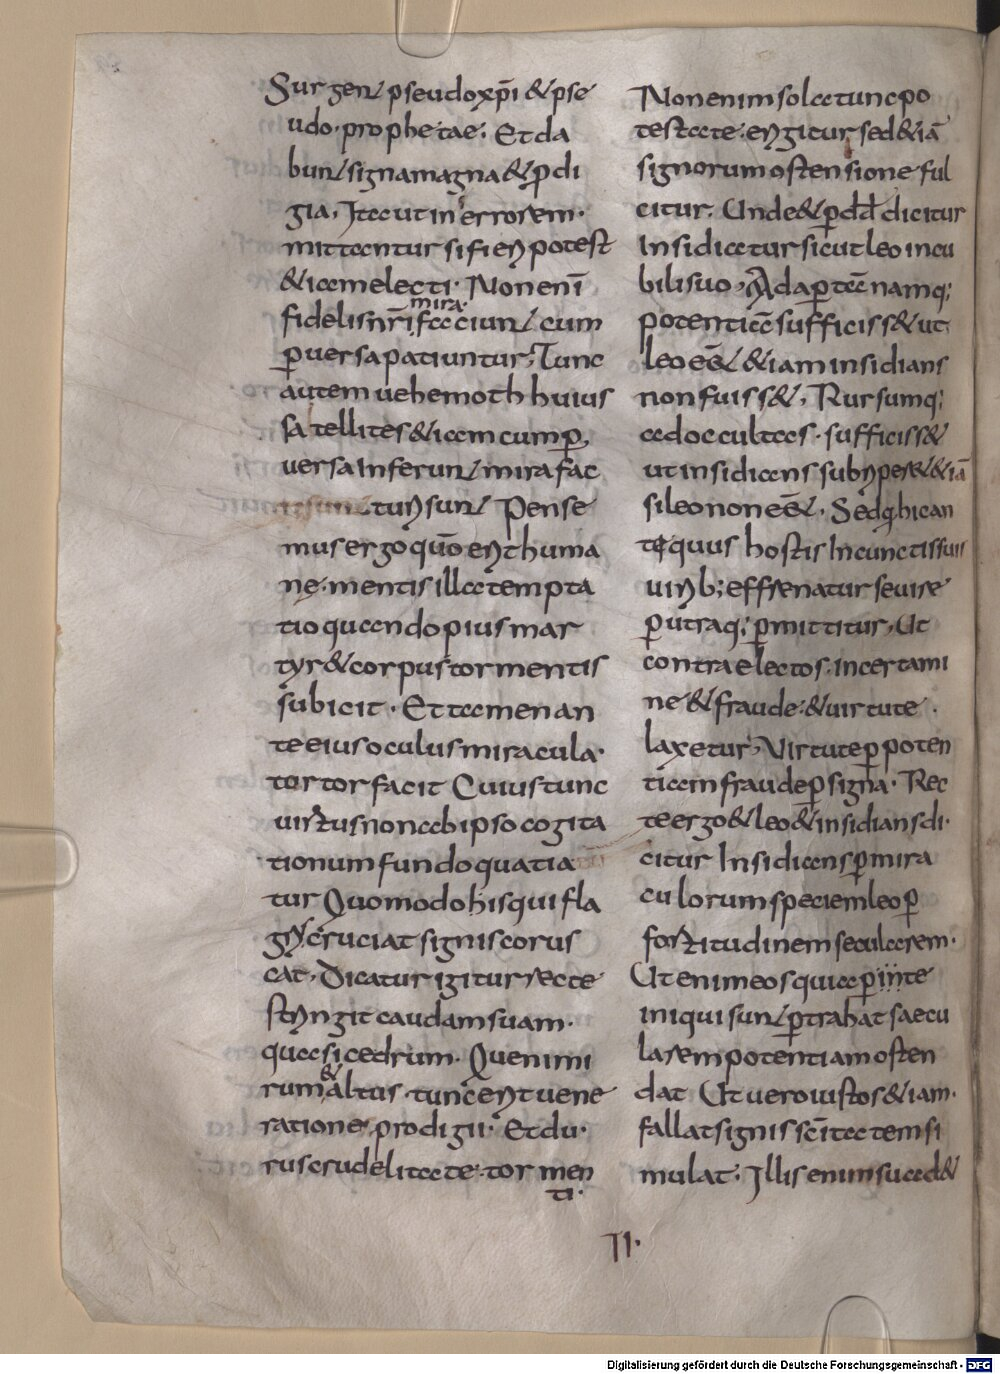 Surgent pseudoxp̄i & pse
udo·prophetae· Et da
bunt signa magna & ꝓdi
gia, Ita ut in errorem·
mittantur si fieri potest
& iam electi· Non enī
fidelis nr̄i mira· faciunt cum
ꝑuersa patiuntur; Tunc
autem uehemoth huius
satellites & iam cum ꝑ,
uersa inferunt mira fac
turi sunt Pense
mus ergo quō erit huma
nę· mentis illa tempta
tio quando pius mar
tyr & corpus tormentis
subicit· Et tamen an
te eius oculus miracula·
tortor facit Cuius tunc
uirtus non ab ipso cogita
tionum fundo quatia
tur Quomodo his qui fla
gris cruciat signis corus
cat, Dicatur igitur recte
stringit caudam suam·
quasi cedrum· Quenimi
rum & altus· tunc erit uene
ratione prodigii· Et du·
rus crudelitate· tor men
ti·
Non enim sola tunc po
testate· erigitur sed & iā
signorum ostensione ful
citur. Unde & ꝑ dd̄ dicitur
Insidiatur sicut leo in cu
bili suo, Ad apertā namq;
potentiā sufficiss& ut
leo eēt & iam insidians
non fuiss&, Rursumq;
ad occultas· sufficiss&
ut insidians subriper& & iā
si leo non eēt. Sed q· hic an
tiquus hostis In cunctis suis
uirib; effrenatur seuire
ꝑ utraq; ꝑmittitur, Ut
contra electos· in certami
ne & fraude· & uirtute·
laxetur; Virtute ꝑ poten
tiam fraude ꝑ signa· Rec
te ergo & leo & insidians di·
citur Insidians ꝑ mira
culorum speciem leo ꝑ
fortitudinem secularem·
Ut enim eos qui aperte
iniqui sunt ꝑtrahat saecu
larem potentiam osten
dat Ut uero iustos & iam·
fallat signis scītatem si
mulat· Illis enim suad&
II·
Digitalisierung gefördert durch die Deutsche Forschungsgemeinschaft - DFG